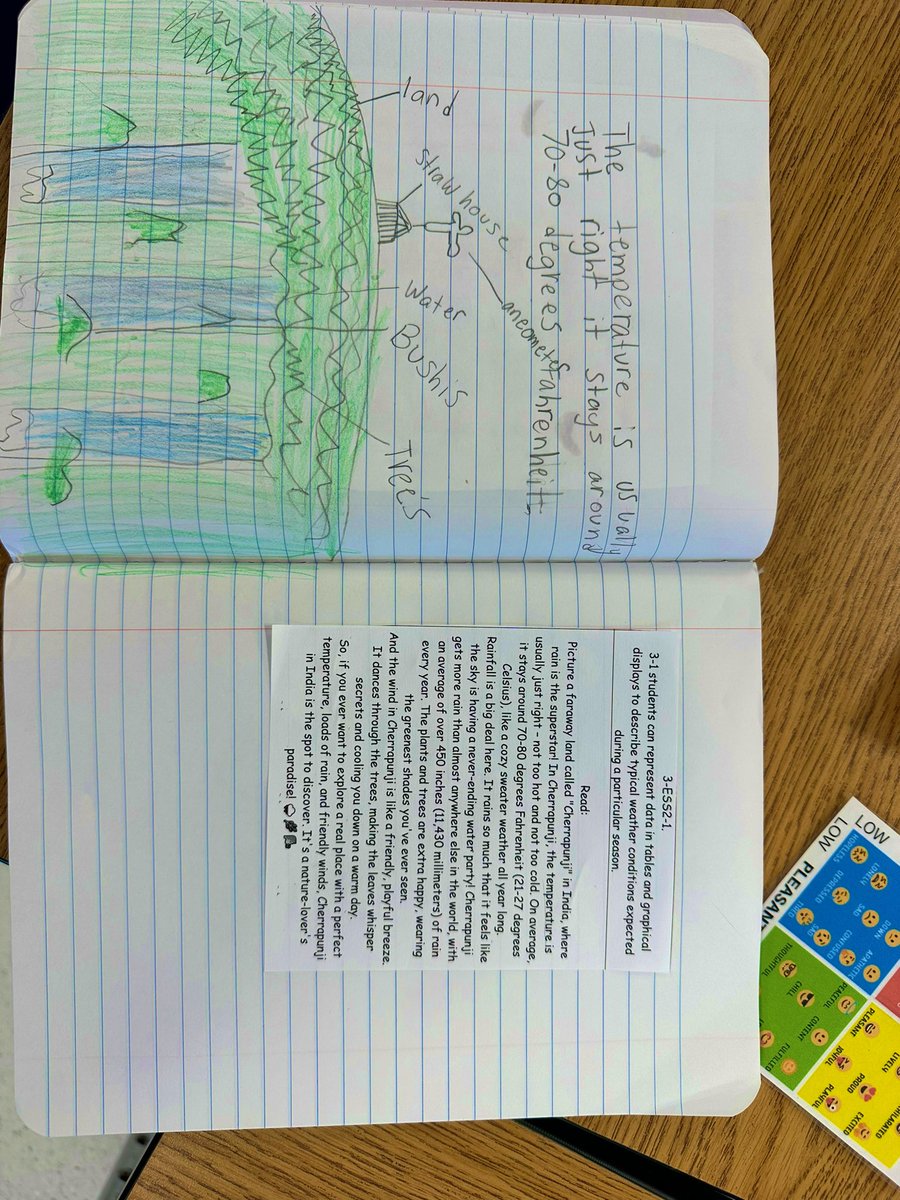 The temperature is usually
Just right it stays around
70-80 degrees fahrenheit.
aneometer
straw house
land
Water
Bushis
Tree's
3-ESS2-1.
3-1 students can represent data in tables and graphical
displays to describe typical weather conditions expected
during a particular season.
Read:
Picture a faraway land called "Cherrapunji" in India, where
rain is the superstar! In Cherrapunji, the temperature is
usually just right – not too hot and not too cold. On average,
it stays around 70-80 degrees Fahrenheit (21-27 degrees
Celsius), like a cozy sweater weather all year long.
Rainfall is a big deal here. It rains so much that it feels like
the sky is having a never-ending water party! Cherrapunji
gets more rain than almost anywhere else in the world, with
an average of over 450 inches (11,430 millimeters) of rain
every year. The plants and trees are extra happy, wearing
the greenest shades you've ever seen.
And the wind in Cherrapunji is like a friendly, playful breeze.
It dances through the trees, making the leaves whisper
secrets and cooling you down on a warm day.
So, if you ever want to explore a real place with a perfect
temperature, loads of rain, and friendly winds, Cherrapunji
in India is the spot to discover. It's a nature-lover's
paradise!
LOW PLEASANT
HOPELESS
LONELY
DOWN
APATHETIC
DEPRESSED
SAD
CONFUSED
TIRED
THOUGHTFUL
PEACEFUL
CHILL
CONTENT
FULFILLED
PLEASANT
JOYFUL
LIVELY
PROUD
PLAYFUL
EXCITED